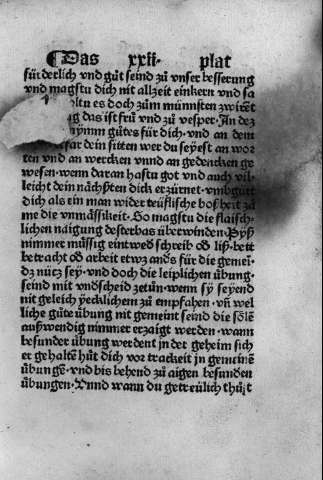 Das xxii· plat
fürderlich vnd gůt seind zů vnser besserung
vnd magstu dich nit allzeit einkern vnd sa
oltu es doch zům münnsten zwirēt
g das ist frů vnd zů vesper· An dez
nymm gůtes für dich· vnd an dem
far dein sitten wer du seyest an wor
ten vnd an wercken vnnd an gedencken ge
wesen· wenn daran hastu got vnd auch vil
leicht dein nächsten dick erzürnet· vmbgürt
dich als ein man wider teüflische boßheit zä
me die vnmässikeit· So magstu die flaisch
lichen naigung desterbas überwinden· Byß
nimmer müssig eintwed schreib od liß· bett
betracht od arbeit etwz ands für die gemei
dz nücz sey· vnd doch die leiplichen übung·
seind mit vndscheid zetůn· wenn sy seyend
nit geleich yecklichem zů empfahen· vñ wel
liche gůte übung nit gemeint seind die söle
außwendig nimmer erzaigt werden· wann
besunder übung werdent in det geheim sich
er gehaltē hüt dich vor trackeit in gemeinē
übungē· vnd bis behend zů aigen besunden
übungen· Vnnd wann du getreülich thůst